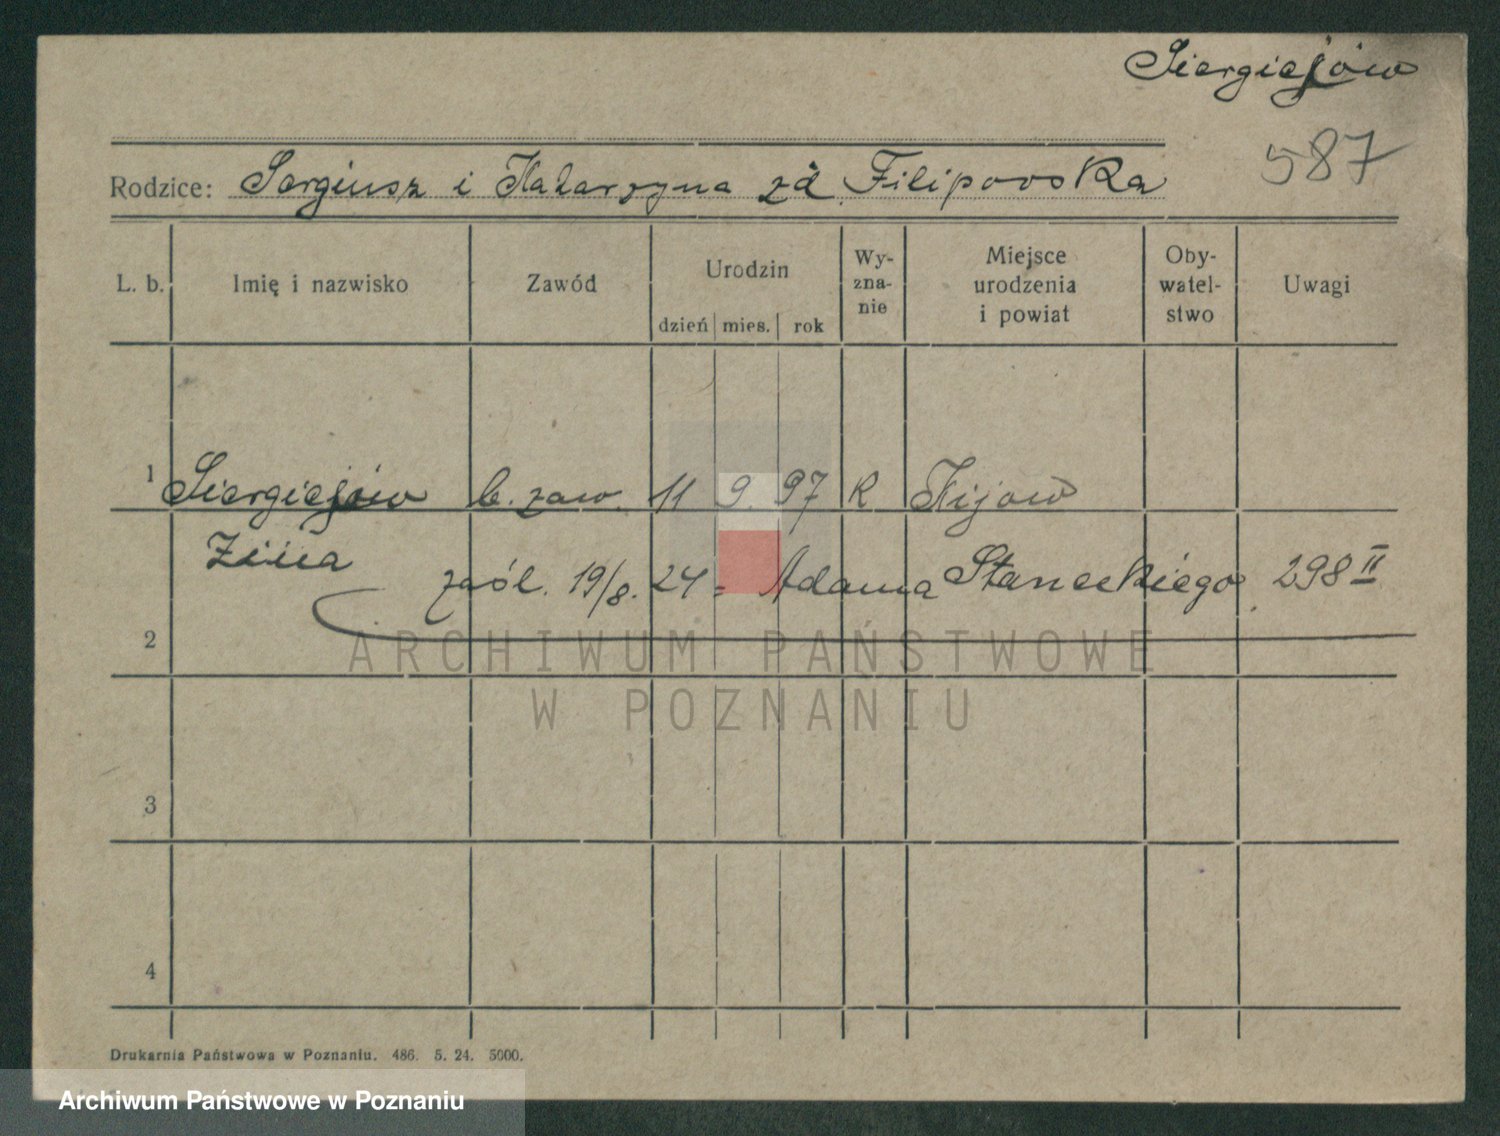 Siergiejów
587
Rodzice: Sergiusz i Katarzyna zd. Filipovska
L. b. Imię i nazwisko Zawód Urodzin dzień mies. rok Wy-zna-nie Miejsce urodzenia i powiat Oby-watel-stwo Uwagi
1 Siergiejów b. zaw. 11 9. 97 R Kijow
Zina
zaśl. 19/8. 24 = Adama Staneckiego. 298 II
2
ARCHIWUM PAŃSTWOWE
W POZNANIU
3
4
Drukarnia Państwowa w Poznaniu. 486. 5. 24. 5000.
Archiwum Państwowe w Poznaniu